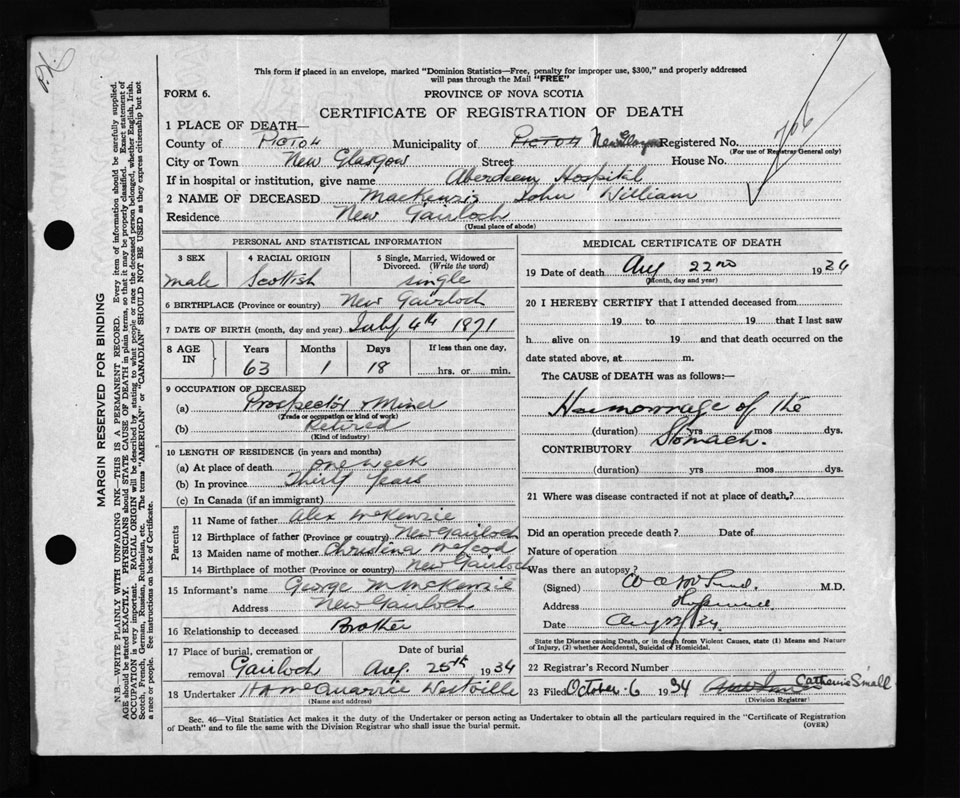 P.X.
This form if placed in an envelope, marked "Dominion Statistics—Free, penalty for improper use, $300," and properly addressed
will pass through the Mail "FREE"
FORM 6.
PROVINCE OF NOVA SCOTIA
CERTIFICATE OF REGISTRATION OF DEATH
1 PLACE OF DEATH—
County of Pictou Municipality of Pictou New Glasgow Registered No. 706
(For use of Registrar General only)
City or Town New Glasgow Street House No.
If in hospital or institution, give name Aberdeen Hospital
2 NAME OF DECEASED MacKenzie John William
Residence New Gairloch
(Usual place of abode)
PERSONAL AND STATISTICAL INFORMATION
3 SEX 4 RACIAL ORIGIN 5 Single, Married, Widowed or
Divorced. (Write the word)
male Scottish single
6 BIRTHPLACE (Province or country) New Gairloch
7 DATE OF BIRTH (month, day and year) July 4th 1871
8 AGE IN Years Months Days If less than one day,
63 1 18 hrs. or min.
9 OCCUPATION OF DECEASED
(a) Prospector & Miner
(Trade or occupation or kind of work)
(b) Retired
(Kind of industry)
10 LENGTH OF RESIDENCE (in years and months)
(a) At place of death one week
(b) In province Thirty Years
(c) In Canada (if an immigrant)
Parents
11 Name of father Alex McKenzie
12 Birthplace of father (Province or country) New Gairloch
13 Maiden name of mother Christina McLeod
14 Birthplace of mother (Province or country) New Gairloch
15 Informant's name George M McKenzie
Address New Gairloch
16 Relationship to deceased Brother
17 Place of burial, cremation or Date of burial
removal Gairloch Aug 25th 1934
18 Undertaker H A McQuarrie Westville
(Name and address)
MEDICAL CERTIFICATE OF DEATH
19 Date of death Aug 22nd 1934
(Month, day and year)
20 I HEREBY CERTIFY that I attended deceased from
19 to 19 that I last saw
h alive on 19 and that death occurred on the
date stated above, at m.
The CAUSE of DEATH was as follows:—
Haemorrage of the
(duration) yrs mos dys.
Stomach.
CONTRIBUTORY
(duration) yrs mos dys.
21 Where was disease contracted if not at place of death?
Did an operation precede death? Date of
Nature of operation
Was there an autopsy?
(Signed) M.D.
Address Hopewell
Date Aug 34
State the Disease causing Death, or in death from Violent Causes, state (1) Means and Nature
of Injury, (2) whether Accidental, Suicidal or Homicidal.
22 Registrar's Record Number
23 Filed October 6 1934 Catherine Small
(Division Registrar)
Sec. 46—Vital Statistics Act makes it the duty of the Undertaker or person acting as Undertaker to obtain all the particulars required in the "Certificate of Registration
of Death" and to file the same with the Division Registrar who shall issue the burial permit.
(OVER)
MARGIN RESERVED FOR BINDING
N.B.—WRITE PLAINLY WITH UNFADING INK—THIS IS A PERMANENT RECORD. Every item of information should be carefully supplied.
AGE should be stated EXACTLY. PHYSICIANS should STATE CAUSE OF DEATH in plain terms, so that it may be properly classified. Exact statement of
OCCUPATION is very important. RACIAL ORIGIN will be described by stating to what people or race the deceased person belonged, whether English, Irish,
Scotch, French, German, Russian, Ruthenian, etc. The terms "AMERICAN" or "CANADIAN" SHOULD NOT BE USED as they express citizenship but not
a race or people. See instructions on back of Certificate.